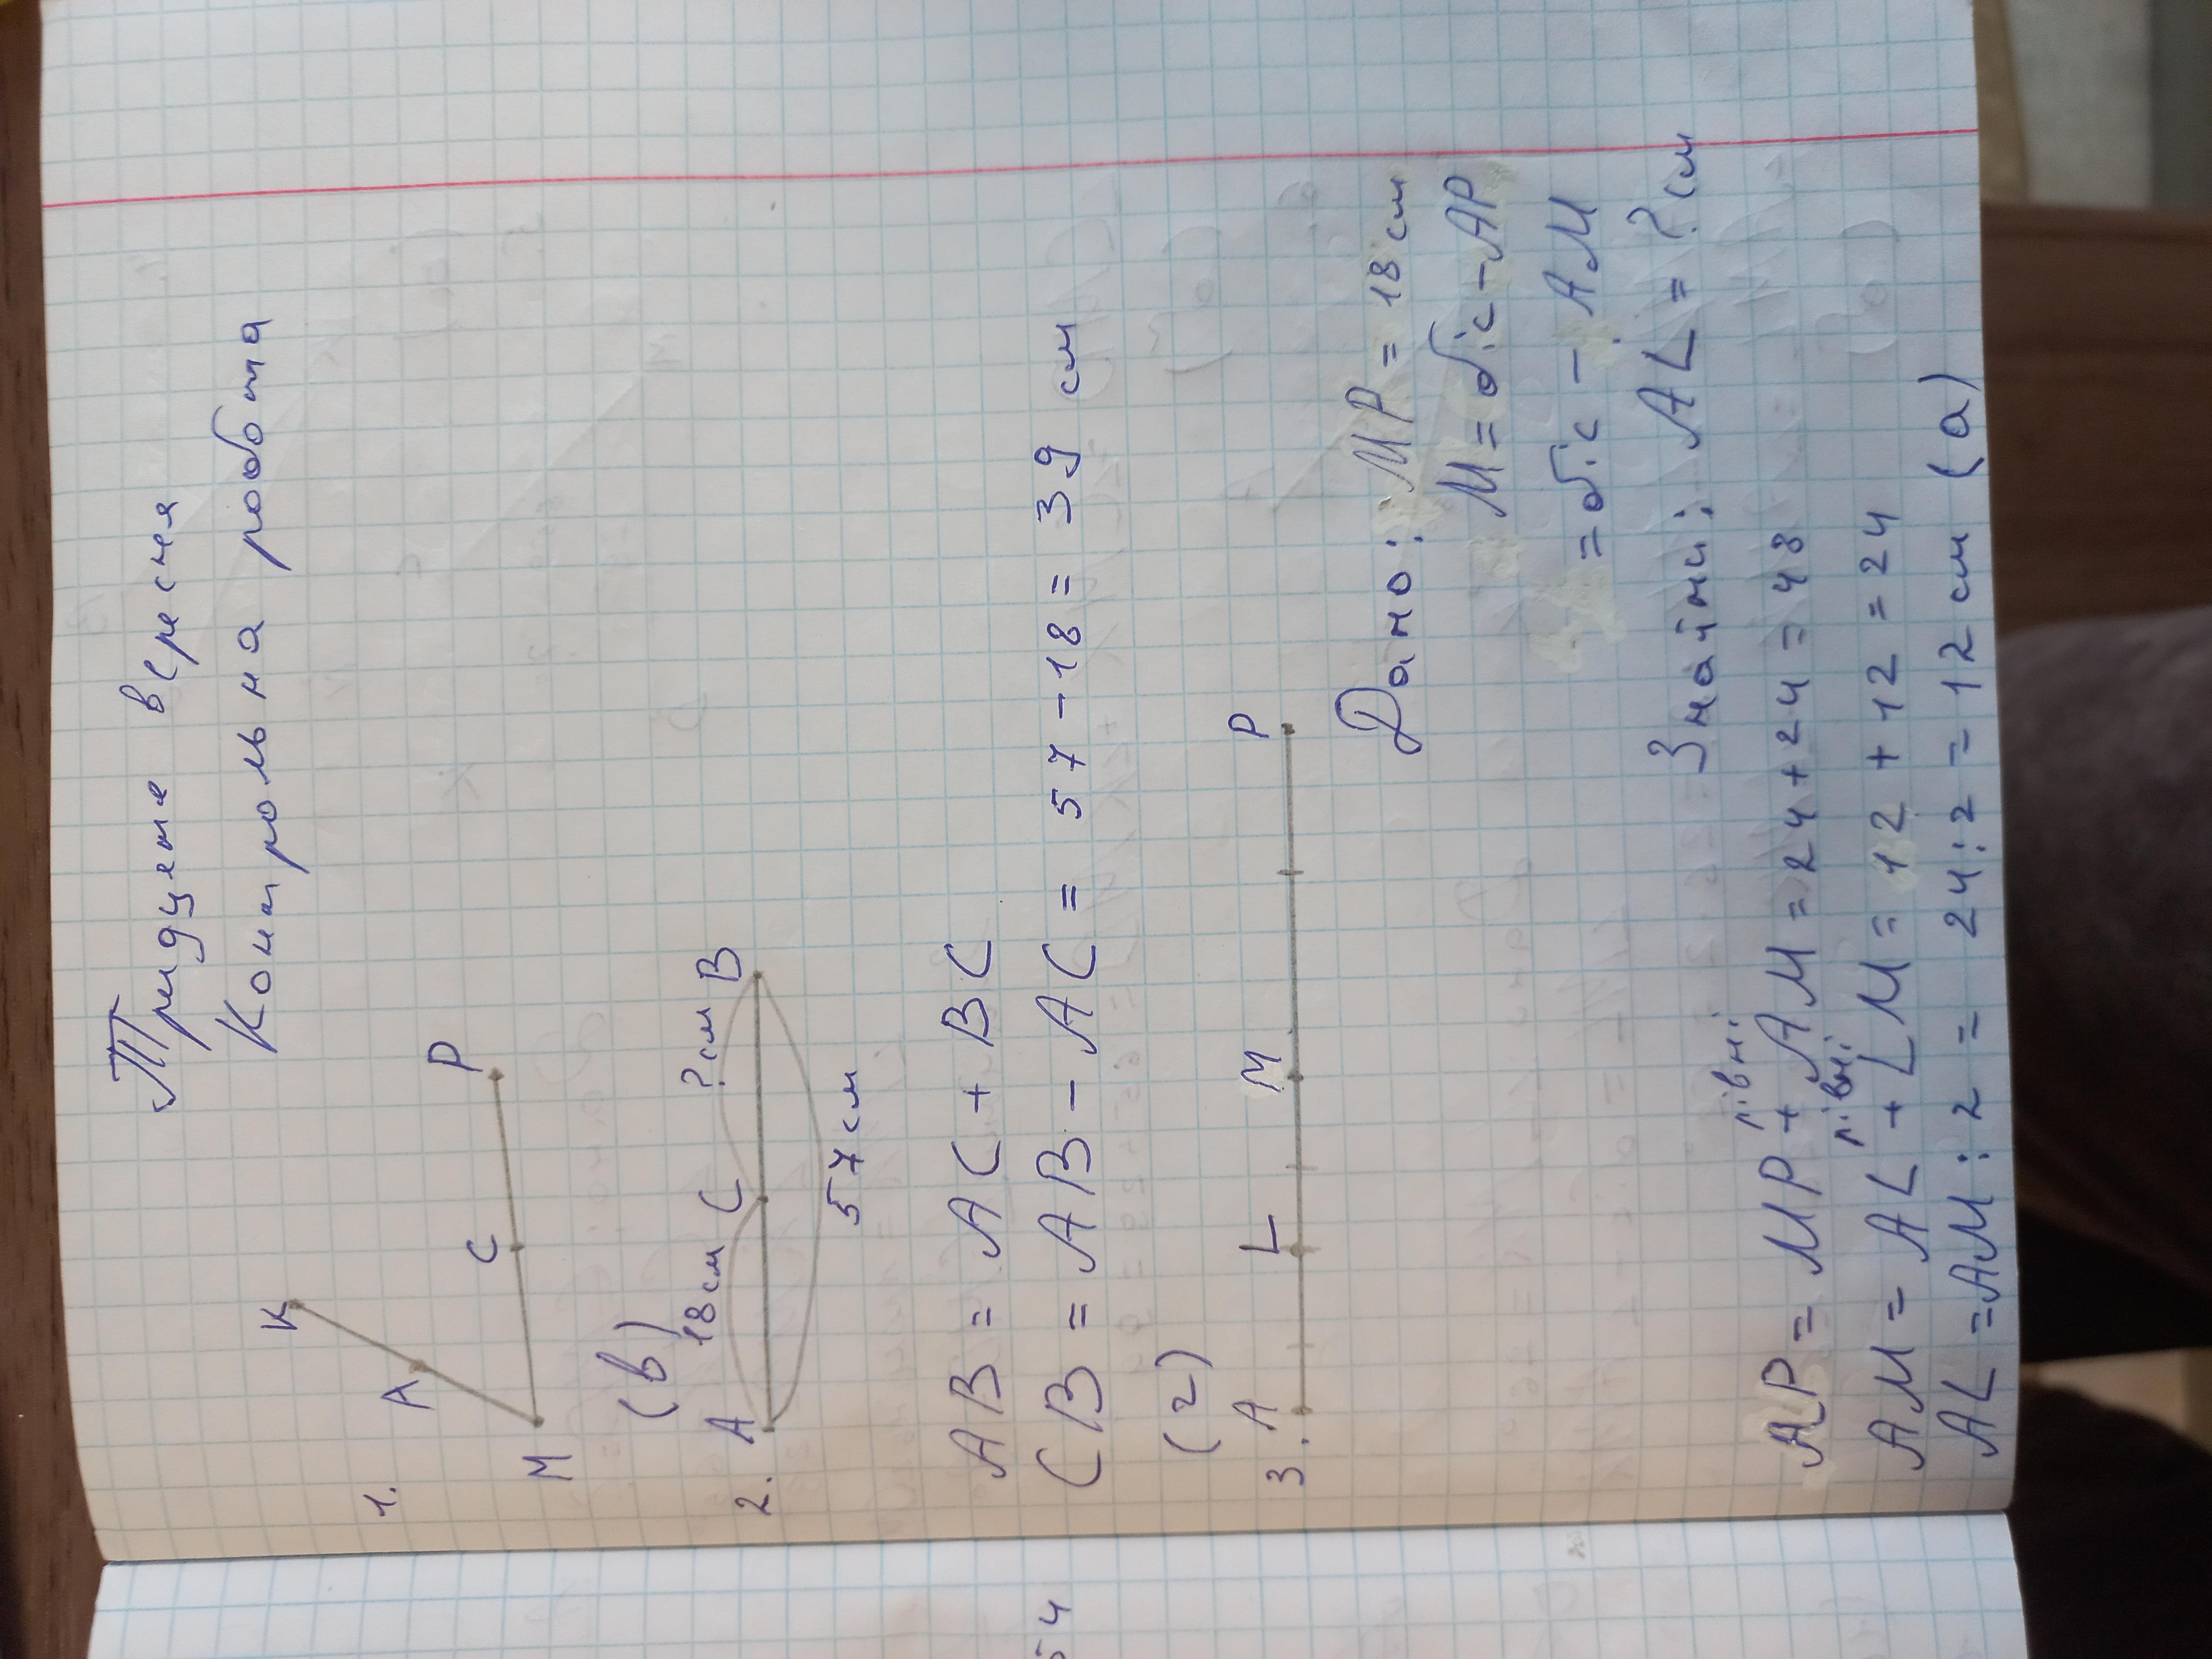 Тридцяте вересня
Контрольна робота
1. K A M C P
(в)
2. A 18 см C ? см B
57 см
AB = AC + BC
CB = AB - AC = 57 - 18 = 39 см
(г)
3. A L M P
Дано: MP = 18 см
M = біс - AP
= біс - AM
Знайти: AL = ? см
рівні
AP = MP + AM = 24 + 24 = 48
рівні
AM = AL + LM = 12 + 12 = 24
AL = AM : 2 = 24 : 2 = 12 см (а)
54